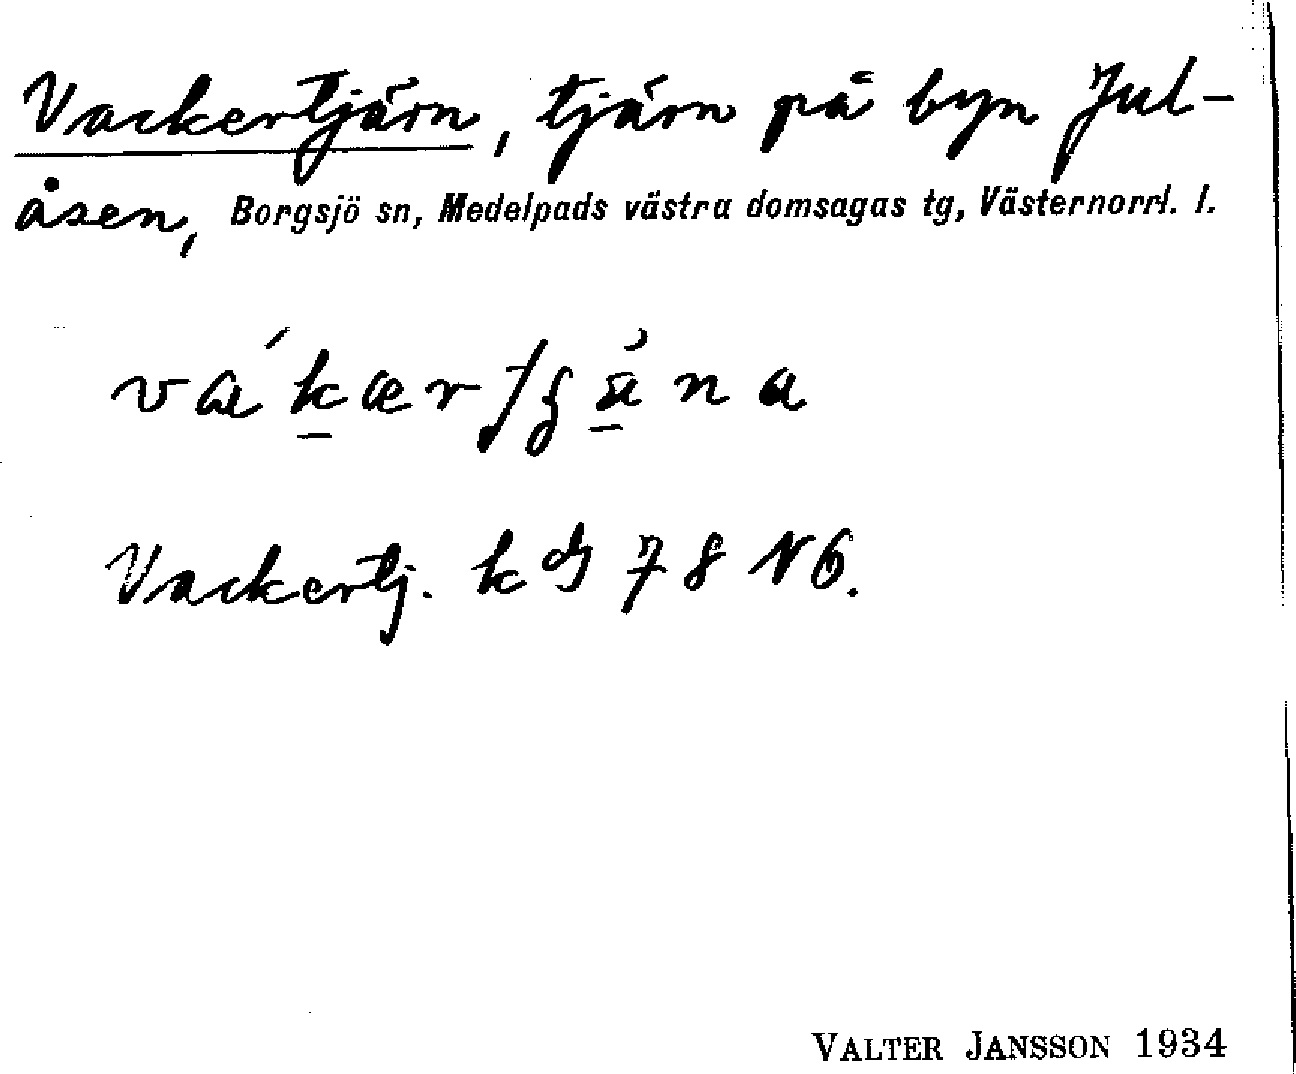 Vackertjärn, tjärn på byn Jul-
åsen, Borgsjö sn, Medelpads västra domsagas tg, Västernorrl. l.
Vackertj. kbl 78 NÖ.
VALTER JANSSON 1934